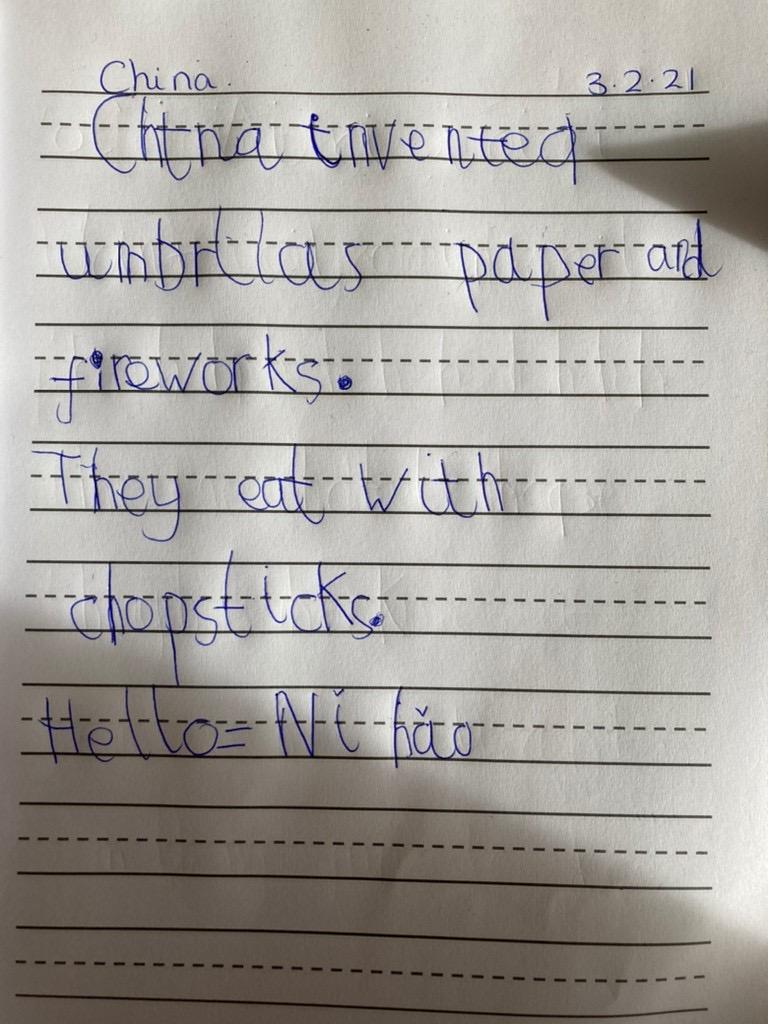 China. 3.2.21
China invented
umbrllas paper and
fireworks.
They eat with
chopsticks.
Hello= Nǐ hǎo